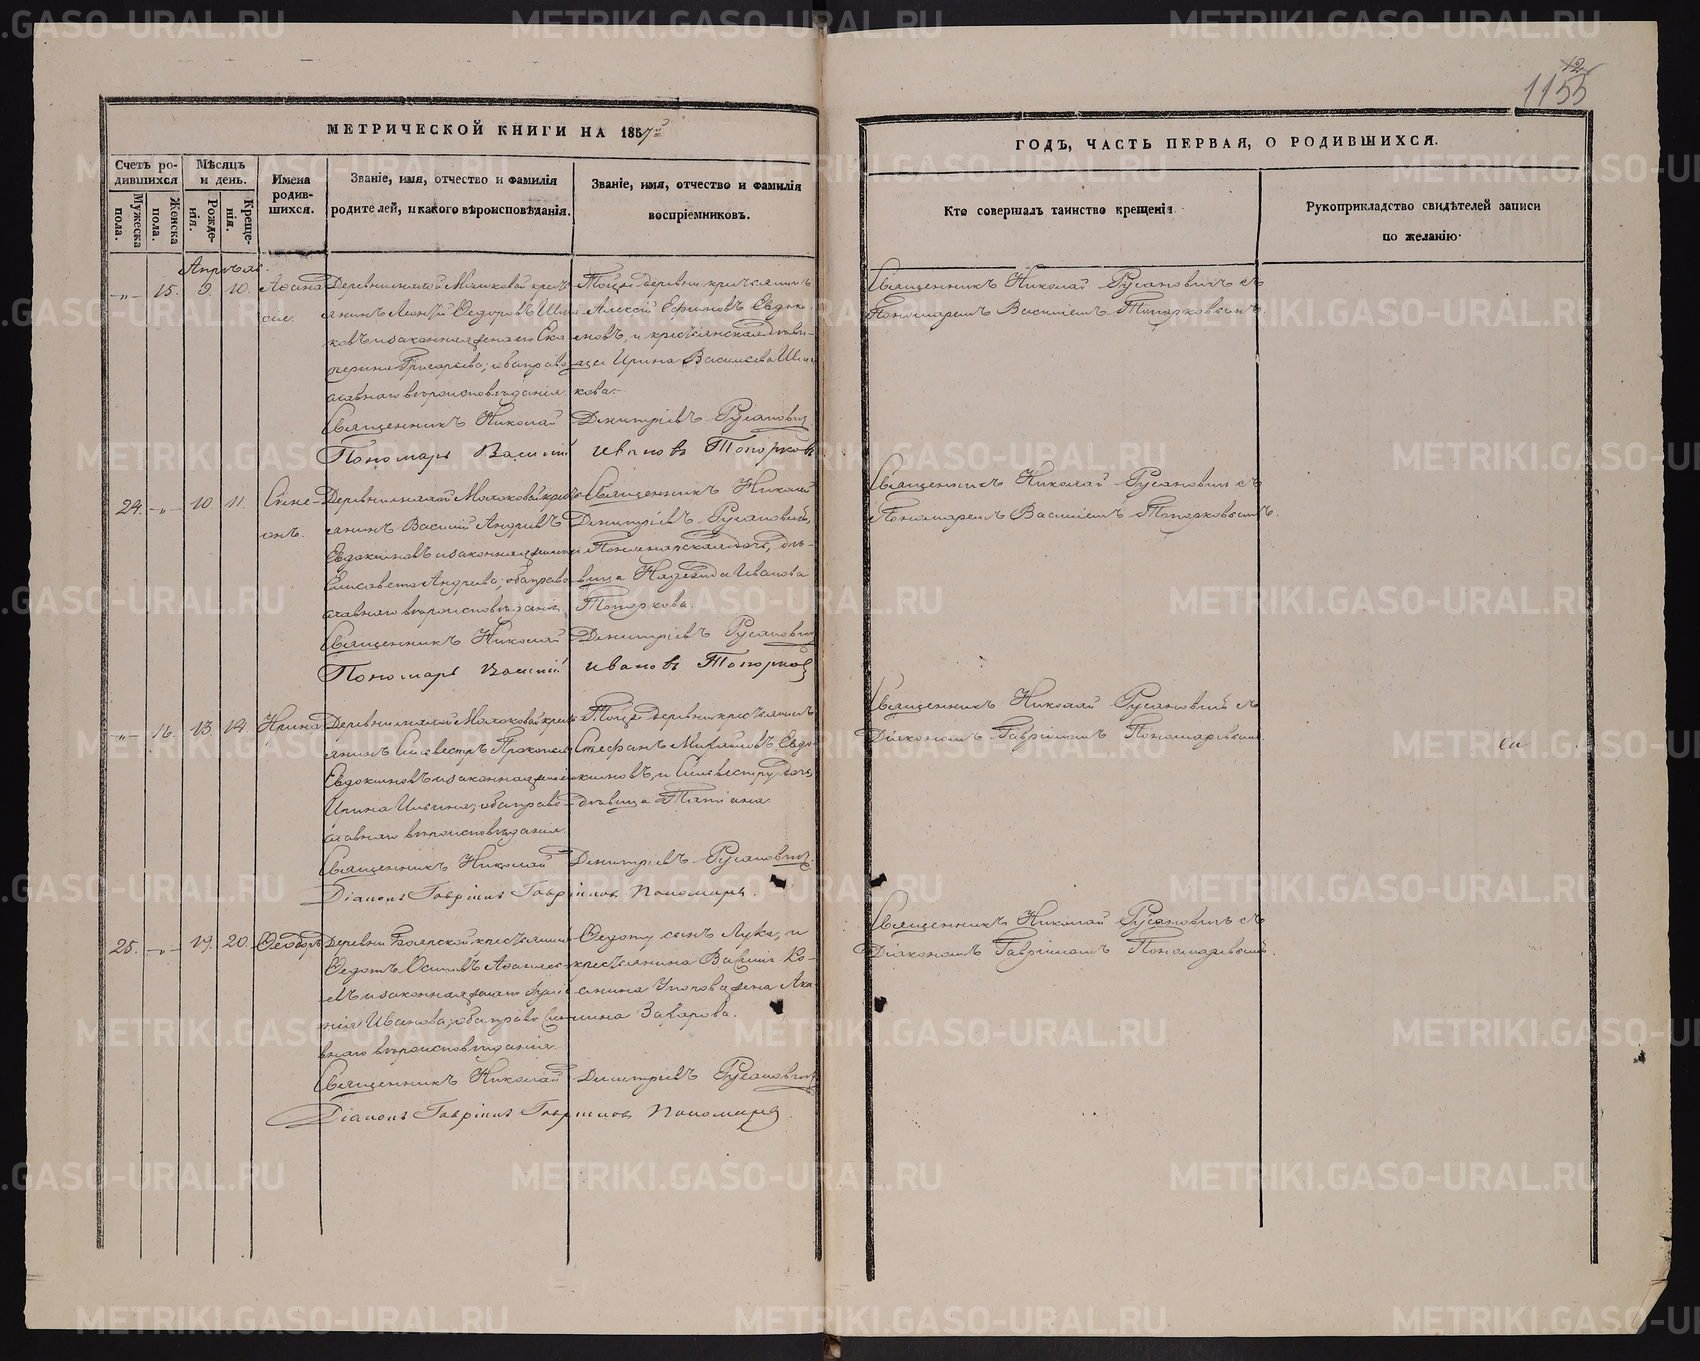 12
1155
МЕТРИЧЕСКОЙ КНИГИ НА 1857й
ГОДЪ, ЧАСТЬ ПЕРВАЯ, О РОДИВШИХСЯ.
Счетъ родившихся
Мужеска пола.
Женска пола.
Мѣсяцъ и день.
Рожденія.
Крещенія.
Имена родившихся.
Званіе, имя, отчество и фамилія
родителей, и какого вѣроисповѣданія.
Званіе, имя, отчество и фамилія
воспріемниковъ.
Кто совершалъ таинство крещенія
Рукоприкладство свидѣтелей записи
по желанію.
Апрѣля.
15. 9. 10.
Деревни Молоковой крестьянинъ
и законная жена его Екатерина Григорьева; оба православнаго вѣроисповѣданія.
Тойже деревни крестьянинъ
Алексій Ефимовъ Евдокимовъ, и крестьянская дѣвица Ирина Васильева
Священникъ Николай Русановичъ съ
Пономаремъ Василіемъ Топорковымъ.
Священникъ Николай Димитріевъ Русановичъ
Пономарь Василій Ивановъ Топорковъ
24. 10. 11. Симеонъ.
Деревни Молоковой крестьянинъ Василій Андреевъ
Евдокимовъ и законная жена его
Елисавета Андреева; оба православнаго вѣроисповѣданія.
Священникъ Николай
Димитріевъ Русановичъ,
и Пономарская дочь, дѣвица Надежда Иванова
Топоркова.
Священникъ Николай Русановичъ съ
Пономаремъ Василіемъ Топорковымъ.
Священникъ Николай Димитріевъ Русановичъ
Пономарь Василій Ивановъ Топорковъ
16. 13. 14. Ирина
Деревни Молоковой крестьянинъ Сильвестръ Прокопьевъ
Евдокимовъ и законная жена его
Ирина Ильина; оба православнаго вѣроисповѣданія.
Тойже деревни крестьянинъ
Стефанъ Михайловъ Евдокимовъ, и Сильвестру дочь,
дѣвица Татіана.
Священникъ Николай Русановичъ съ
Діакономъ Гавріиломъ Пономаревымъ.
Священникъ Николай Димитріевъ Русановичъ.
Діаконъ Гавріилъ Гавріиловъ Пономаревъ
25. 19. 20. Ѳеодоръ
Деревни Боярской крестьянинъ
Ѳедотъ Осиповъ
и законная жена его
Иванова; оба православнаго вѣроисповѣданія.
Ѳедоту сынъ Лука, и
крестьянина
жена Акилина Захарова.
Священникъ Николай Русановичъ съ
Діакономъ Гавріиломъ Пономаревымъ.
Священникъ Николай Димитріевъ Русановичъ
Діаконъ Гавріилъ Гавріиловъ Пономаревъ
METRIKI.GASO-URAL.RU